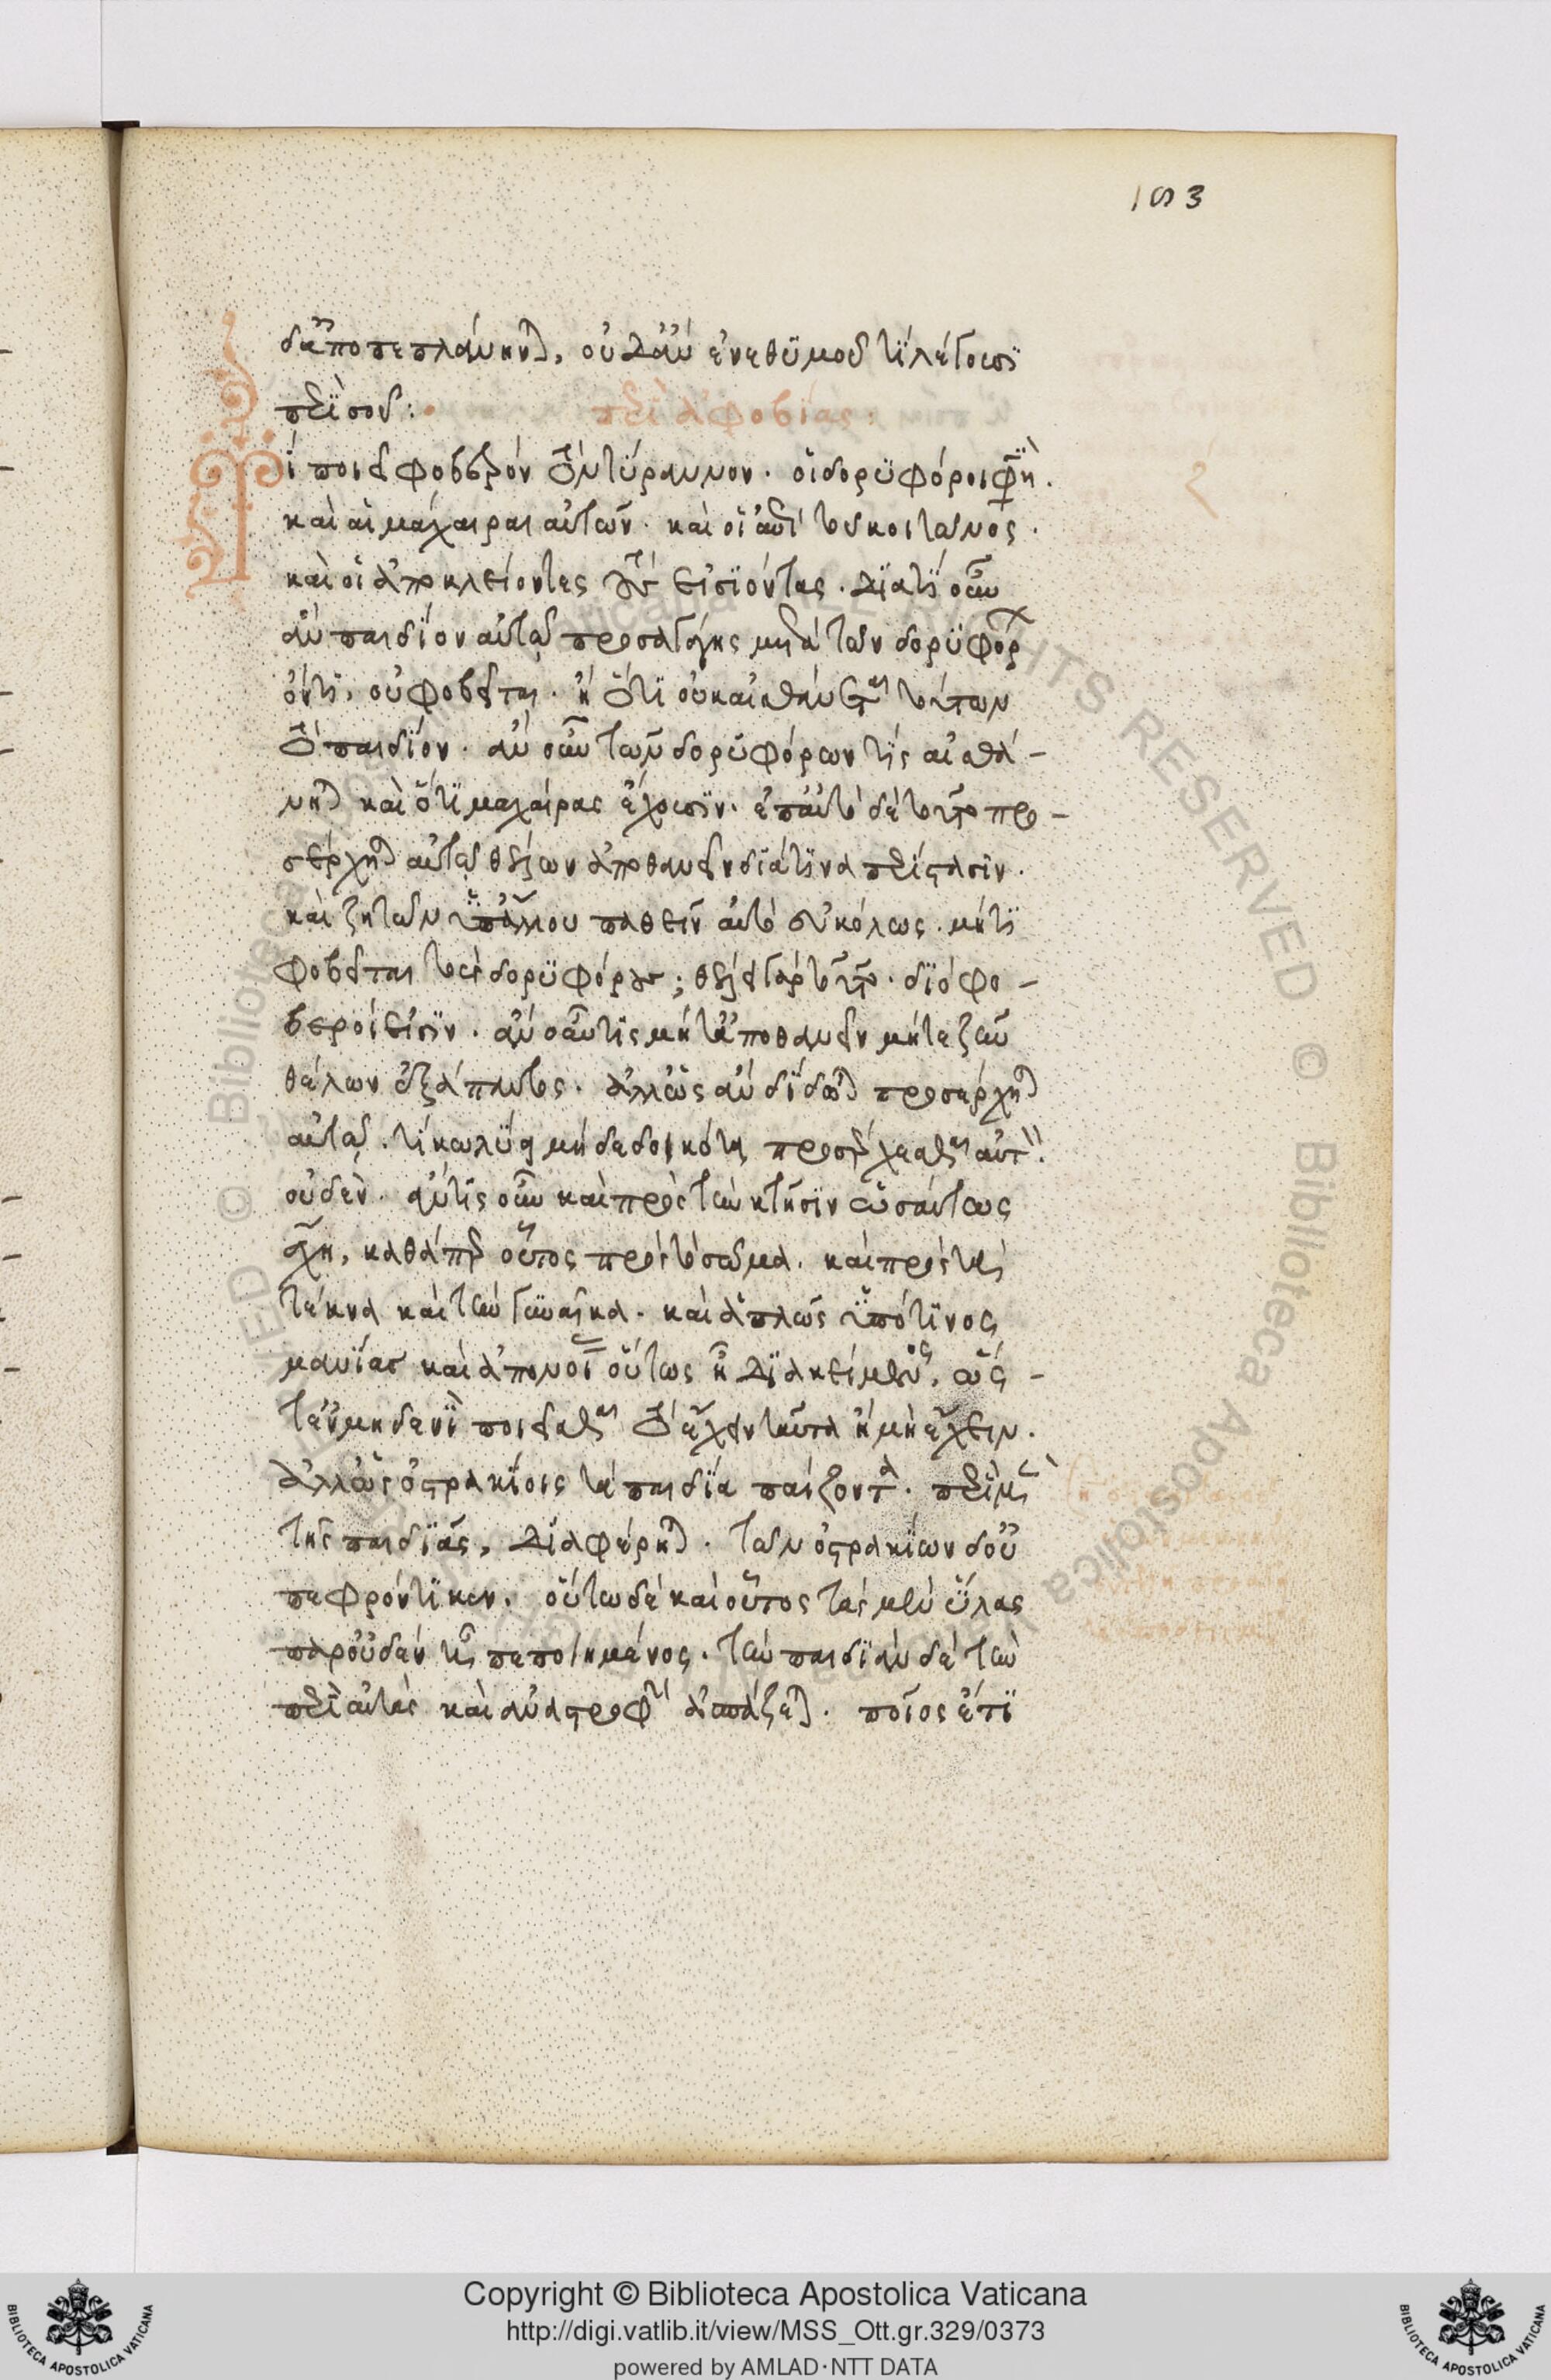 183
δ' ἀποπεπλάνηται, οὐδ' ἂν ἐνεθυμοῦ τί λέγουσι
περὶ σοῦ:
περὶ ἀφοβίας:
Τί ποιεῖ φοβερὸν τὸν τύραννον. οἱ δορυφόροι φησὶ.
καὶ αἱ μάχαιραι αὐτῶν. καὶ οἱ ἐπὶ τοῦ κοιτῶνος.
καὶ οἱ ἀποκλείοντες τοὺς εἰσιόντας. διατί οὖν
ἂν παιδίον αὐτῷ προσαγάγῃς μετὰ τῶν δορυφόρων
ὄντι, οὐ φοβεῖται. ἢ ὅτι οὐκ αἰσθάνεται τούτων
τὸ παιδίον. ἂν οὖν τῶν δορυφόρων τίς αἰσθά-
νηται καὶ ὅτι μαχαίρας ἔχουσιν. ἐπ' αὐτὸ δὲ τοῦτο προ-
σέρχηται αὐτῷ θέλων ἀποθανεῖν διά τινα περίστασιν.
καὶ ζητῶν ὑπ' ἄλλου παθεῖν αὐτὸ εὐκόλως. μήτι
φοβεῖται τοὺς δορυφόρους; θέλει γὰρ τοῦτο. διὸ φο-
βεροί εἰσιν. ἂν οὖν τις μήτ' ἀποθανεῖν μήτε ζῆν
θέλων ἐξάπαντος. ἀλλ' ὡς ἂν δίδωται προσέρχηται
αὐτῷ. τί κωλύει μὴ δεδοικότα προσέρχεσθαι αὐτὸν.
οὐδὲν. ἄν τις οὖν καὶ πρὸς τὴν κτῆσιν ὡσαύτως
ἔχῃ, καθάπερ οὗτος πρὸς τὸ σῶμα. καὶ πρὸς τὰ
τέκνα καὶ τὴν γυναῖκα. καὶ ἁπλῶς ὑπό τινος
μανίας καὶ ἀπονοίας οὕτως ᾖ διακείμενος, ὥς-
τ' ἐν μηδενὶ ποιεῖσθαι τὸ ἔχειν ταῦτα ἢ μὴ ἔχειν.
ἀλλ' ὡς ὀστρακίοις τὰ παιδία παίζοντα. περὶ μὲν
τῆς παιδιᾶς, διαφέρεται. τῶν ὀστρακίων δ' οὐ
πεφρόντικεν. οὕτω δὲ καὶ οὗτος τὰς μὲν ὕλας
παρ' οὐδὲν ᾖ πεποιημένος. τὴν παιδιὰν δὲ τὴν
περὶ αὐτὰς καὶ ἀναστροφὴν ἀσπάζεται. ποῖος ἔτι
Copyright © Biblioteca Apostolica Vaticana
http://digi.vatlib.it/view/MSS_Ott.gr.329/0373
powered by AMLAD·NTT DATA